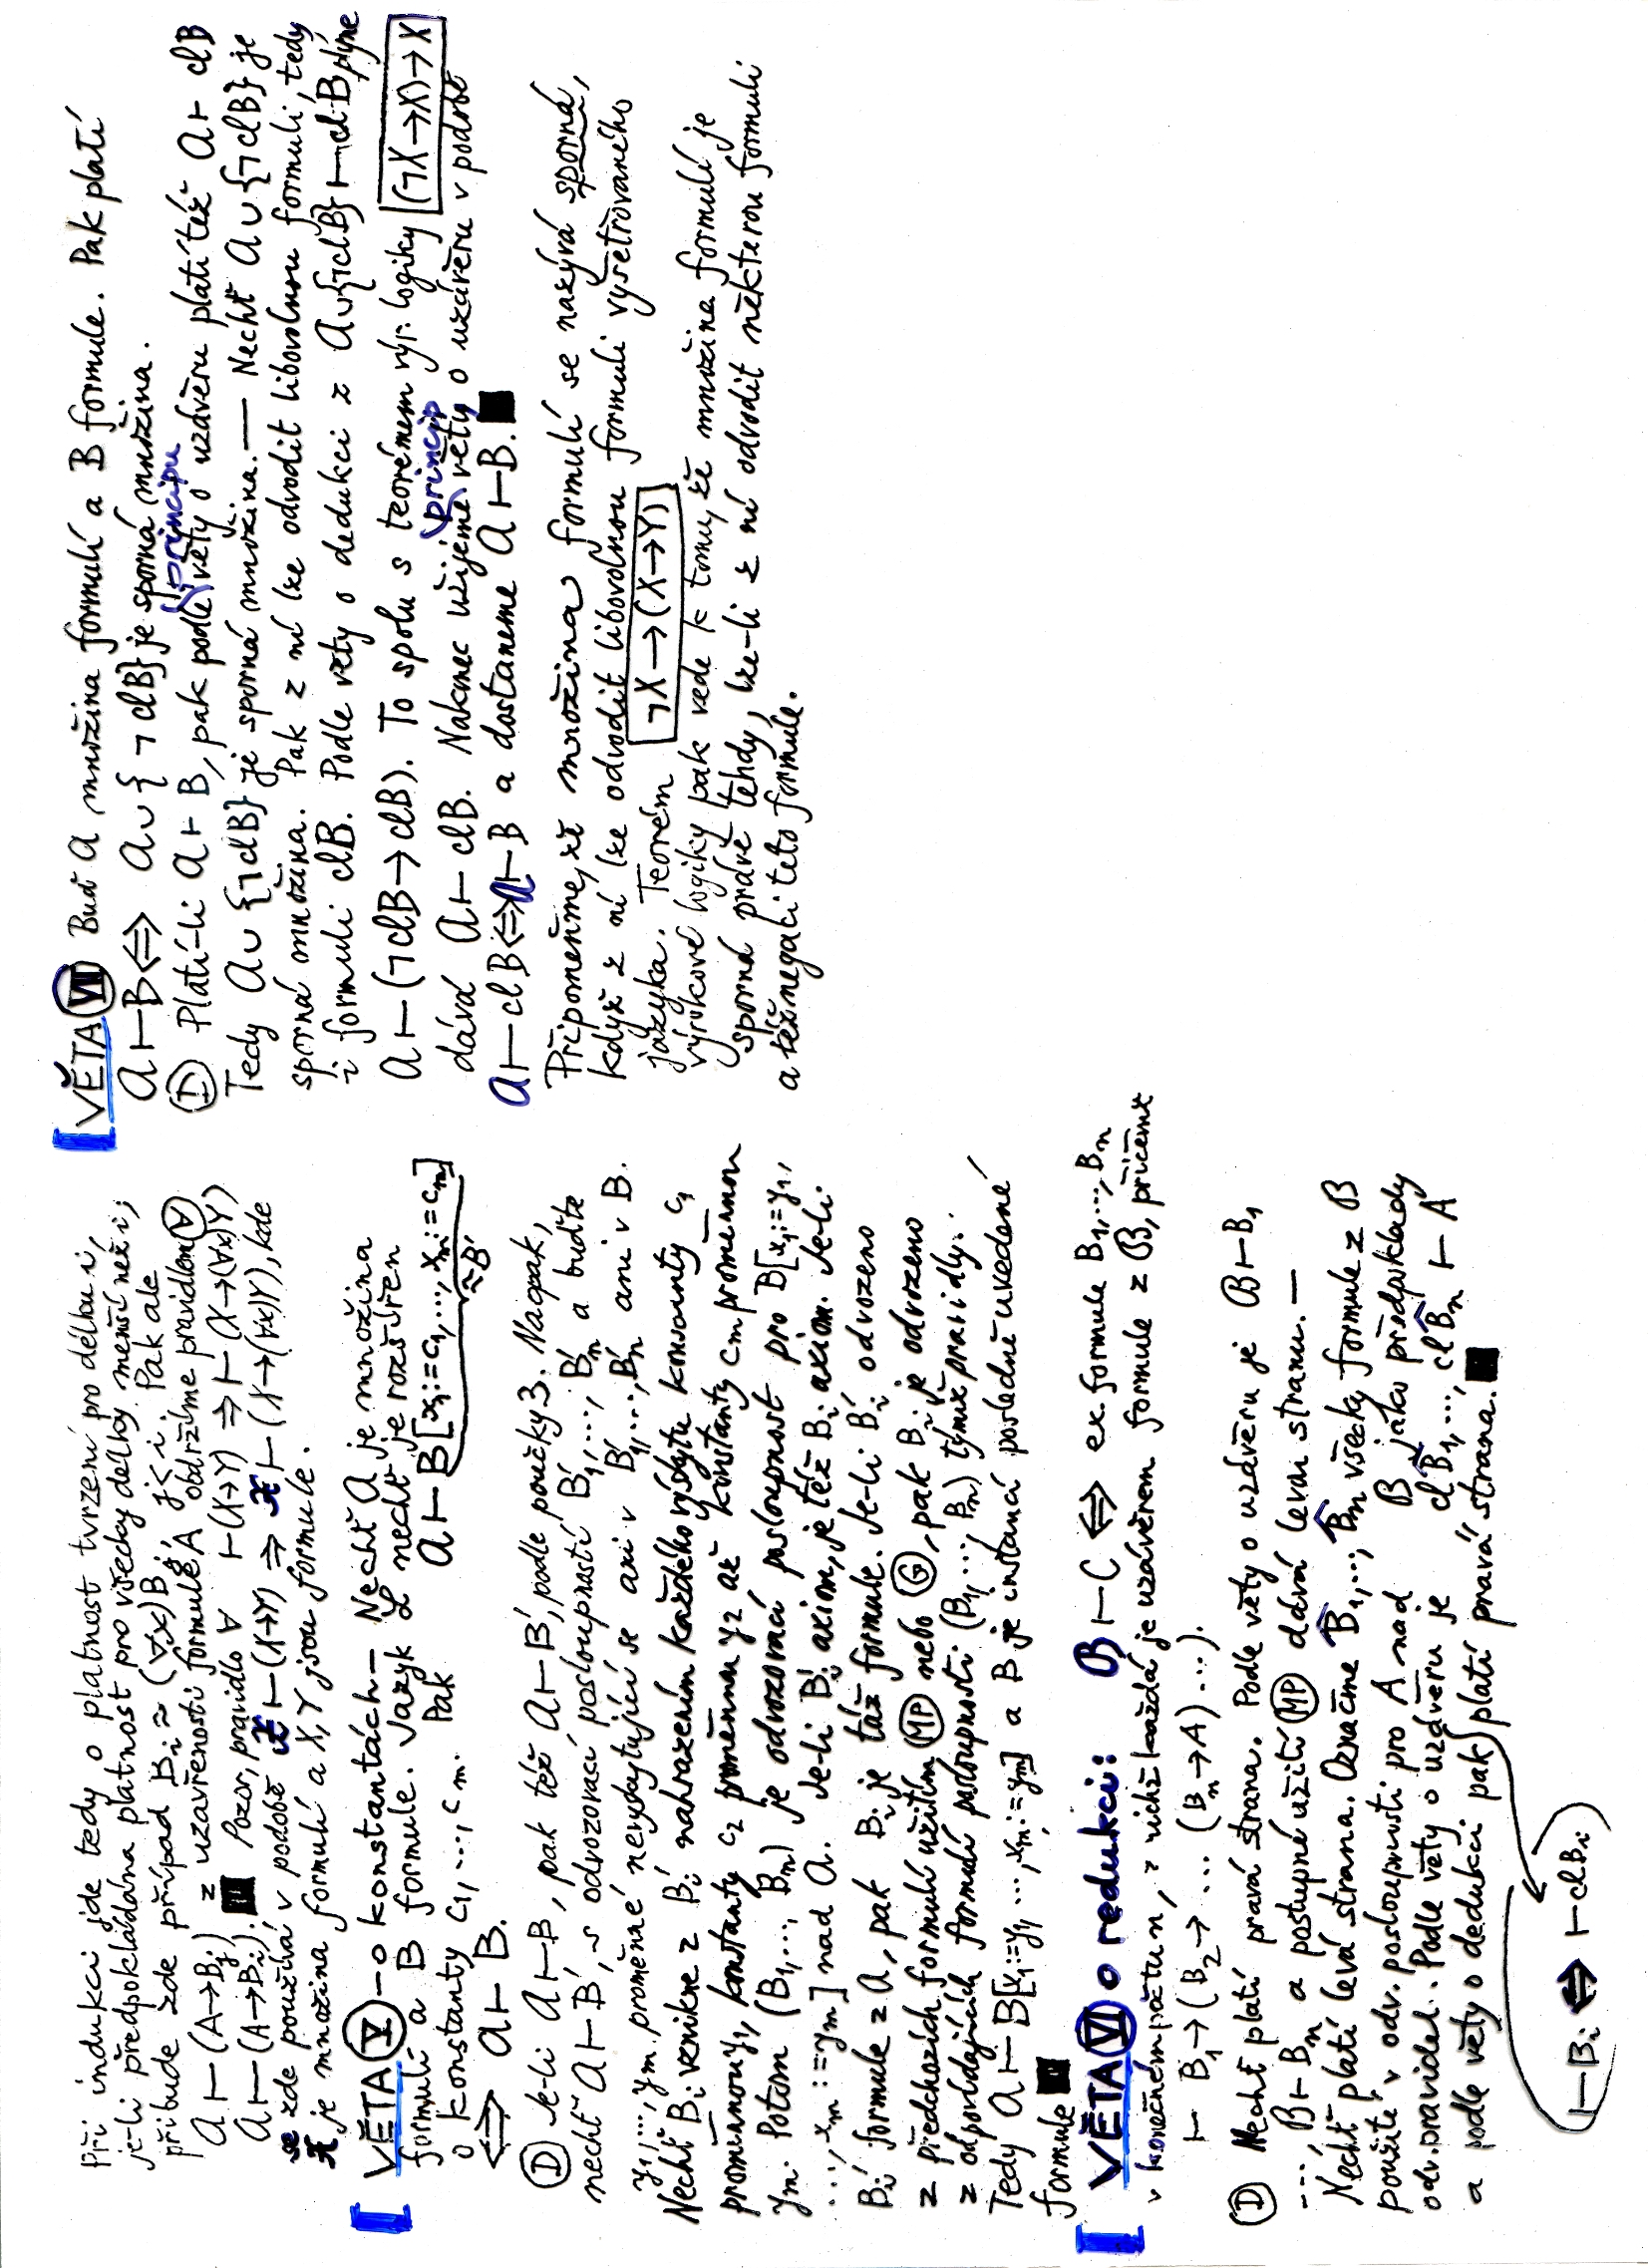 Při indukci jde tedy o platnost tvrzení pro délku i,
je-li předpokládána platnost pro všecky délky menší než i;
přibude zde případ Bᵢ ≈ (∀x)Bⱼ, j<i. Pak ale
A ⊢ (A→Bⱼ) z uzavřenosti formule A obdržíme pravidlem Ⓥ
A ⊢ (A→Bᵢ). ■ Pozor, pravidlo ∀ ⊢(X→Y) ⇒ ⊢(X→(∀x)Y)
se zde používá v podobě ⊢(X→Y) ⇒ ⊢(X→(∀x)Y), kde
je množina formulí a X,Y jsou formule.
VĚTA Ⓥ - o konstantách - Nechť A je množina
formulí a B formule. Jazyk L nechť je rozšířen
o konstanty c₁,...,cₘ. Pak A ⊢ B[x₁:=c₁,...,xₘ:=cₘ]
≈B'
⇔ A ⊢ B.
Ⓓ Je-li A⊢B, pak též A⊢B', podle poučky 3. Naopak,
nechť A⊢B', s odvozovací posloupností B'₁,...,B'ₙ a buďte
y₁,...,yₘ proměnné nevyskytující se ani v B'₁,...,B'ₙ ani v B.
Nechť Bᵢ vznikne z B'ᵢ nahrazením každého výskytu konstanty c₁
proměnnou y₁, konstanty c₂ proměnnou y₂ až konstanty cₘ proměnnou
yₘ. Potom (B₁,...,Bₙ) je odvozovací posloupnost pro B[x₁:=y₁,
...,xₘ:=yₘ] nad A. Je-li B'ᵢ axiom, je též Bᵢ axiom. Je-li
B'ᵢ formule z A, pak Bᵢ je táž formule. Je-li B'ᵢ odvozeno
z předchozích formulí užitím ⓂⓅ nebo Ⓖ, pak Bᵢ je odvozeno
z odpovídajících formulí posloupnosti (B₁,...,Bₙ) týmiž pravidly.
Tedy A ⊢ B[x₁:=y₁,...,xₘ:=yₘ] a B je instancí posledně uvedené
formule ■
VĚTA Ⅵ o redukci: B ⊢ C ⇔ ex. formule B₁,...,Bₙ
v konečném počtu n, z nichž každá je uzávěrem formule z B, přičemž
⊢ B₁→(B₂→ ... (Bₙ→A)...).
Ⓓ Nechť platí pravá strana. Podle věty o uzávěru je B⊢B₁
... B⊢Bₙ a postupné užití ⓂⓅ dává levou stranu. —
Nechť platí levá strana. Označme B₁,...,Bₙ všecky formule z B
použité v odv. posloupnosti pro A nad B jako předpoklady
odv. pravidel. Podle věty o uzávěru je clB₁,...,clBₙ ⊢ A
a podle věty o dedukci pak platí pravá strana. ■
⊢Bᵢ ⇔ ⊢clBᵢ
VĚTA Ⅶ Buď A množina formulí a B formule. Pak platí
A⊢B ⇔ A∪{¬clB} je sporná množina.
principu
Ⓓ Platí-li A⊢B, pak podle věty o uzávěru platí též A⊢clB
Tedy A∪{¬clB} je sporná množina. — Nechť A∪{¬clB} je
sporná množina. Pak z ní lze odvodit libovolnou formuli, tedy
i formuli clB. Podle věty o dedukci z A∪{¬clB}⊢clB plyne
A⊢(¬clB→clB). To spolu s teorémem výr. logiky (¬X→X)→X
princip
dává A⊢clB. Nakonec užijeme věty o uzávěru v podobě
A⊢clB⇔A⊢B a dostaneme A⊢B. ■
Připomeňme, že množina formulí se nazývá sporná,
když z ní lze odvodit libovolnou formuli vyšetřovaného
jazyka. Teorém ¬X→(X→Y)
výrokové logiky pak vede k tomu, že množina formulí je
sporná právě tehdy, lze-li z ní odvodit některou formuli
a též negaci této formule.